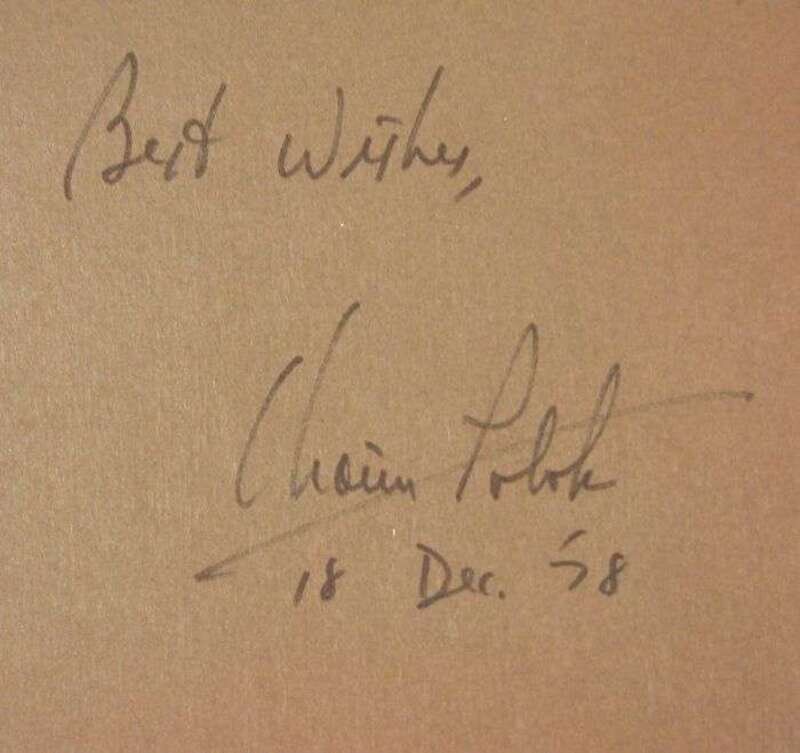 Best Wishes,
Chaim Potok
18 Dec. '78